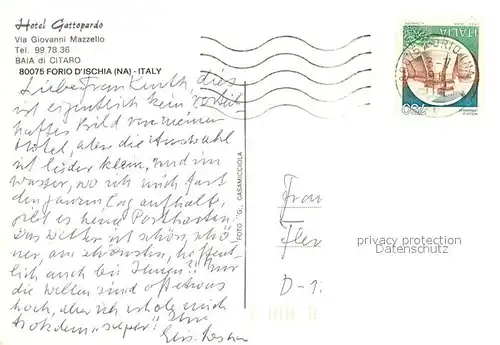 Hotel Gattopardo
Via Giovanni Mazzello
Tel. 99.78.36
BAIA di CITARO
80075 FORIO D'ISCHIA (NA) - ITALY
Liebe Frau dies
ist eigentlich kein vorteil
haftes Bild von meinem
Hotel, aber die Auswahl
ist leider klein, und im
wasser, wo ich mich fast
den ganzen Tag aufhalte,
gibt es keine Postkarten.
Das Wetter ist schön, schö
ner, am schönsten, hoffent
lich auch bei Ihnen? Nur
die Wellen sind oft etwas
hoch, aber ich erhole mich
trotzdem "super". Ihre
FOTO G., CASAMICCIOLA
Frau
D-1.
privacy protection
Datenschutz
ITALIA
750